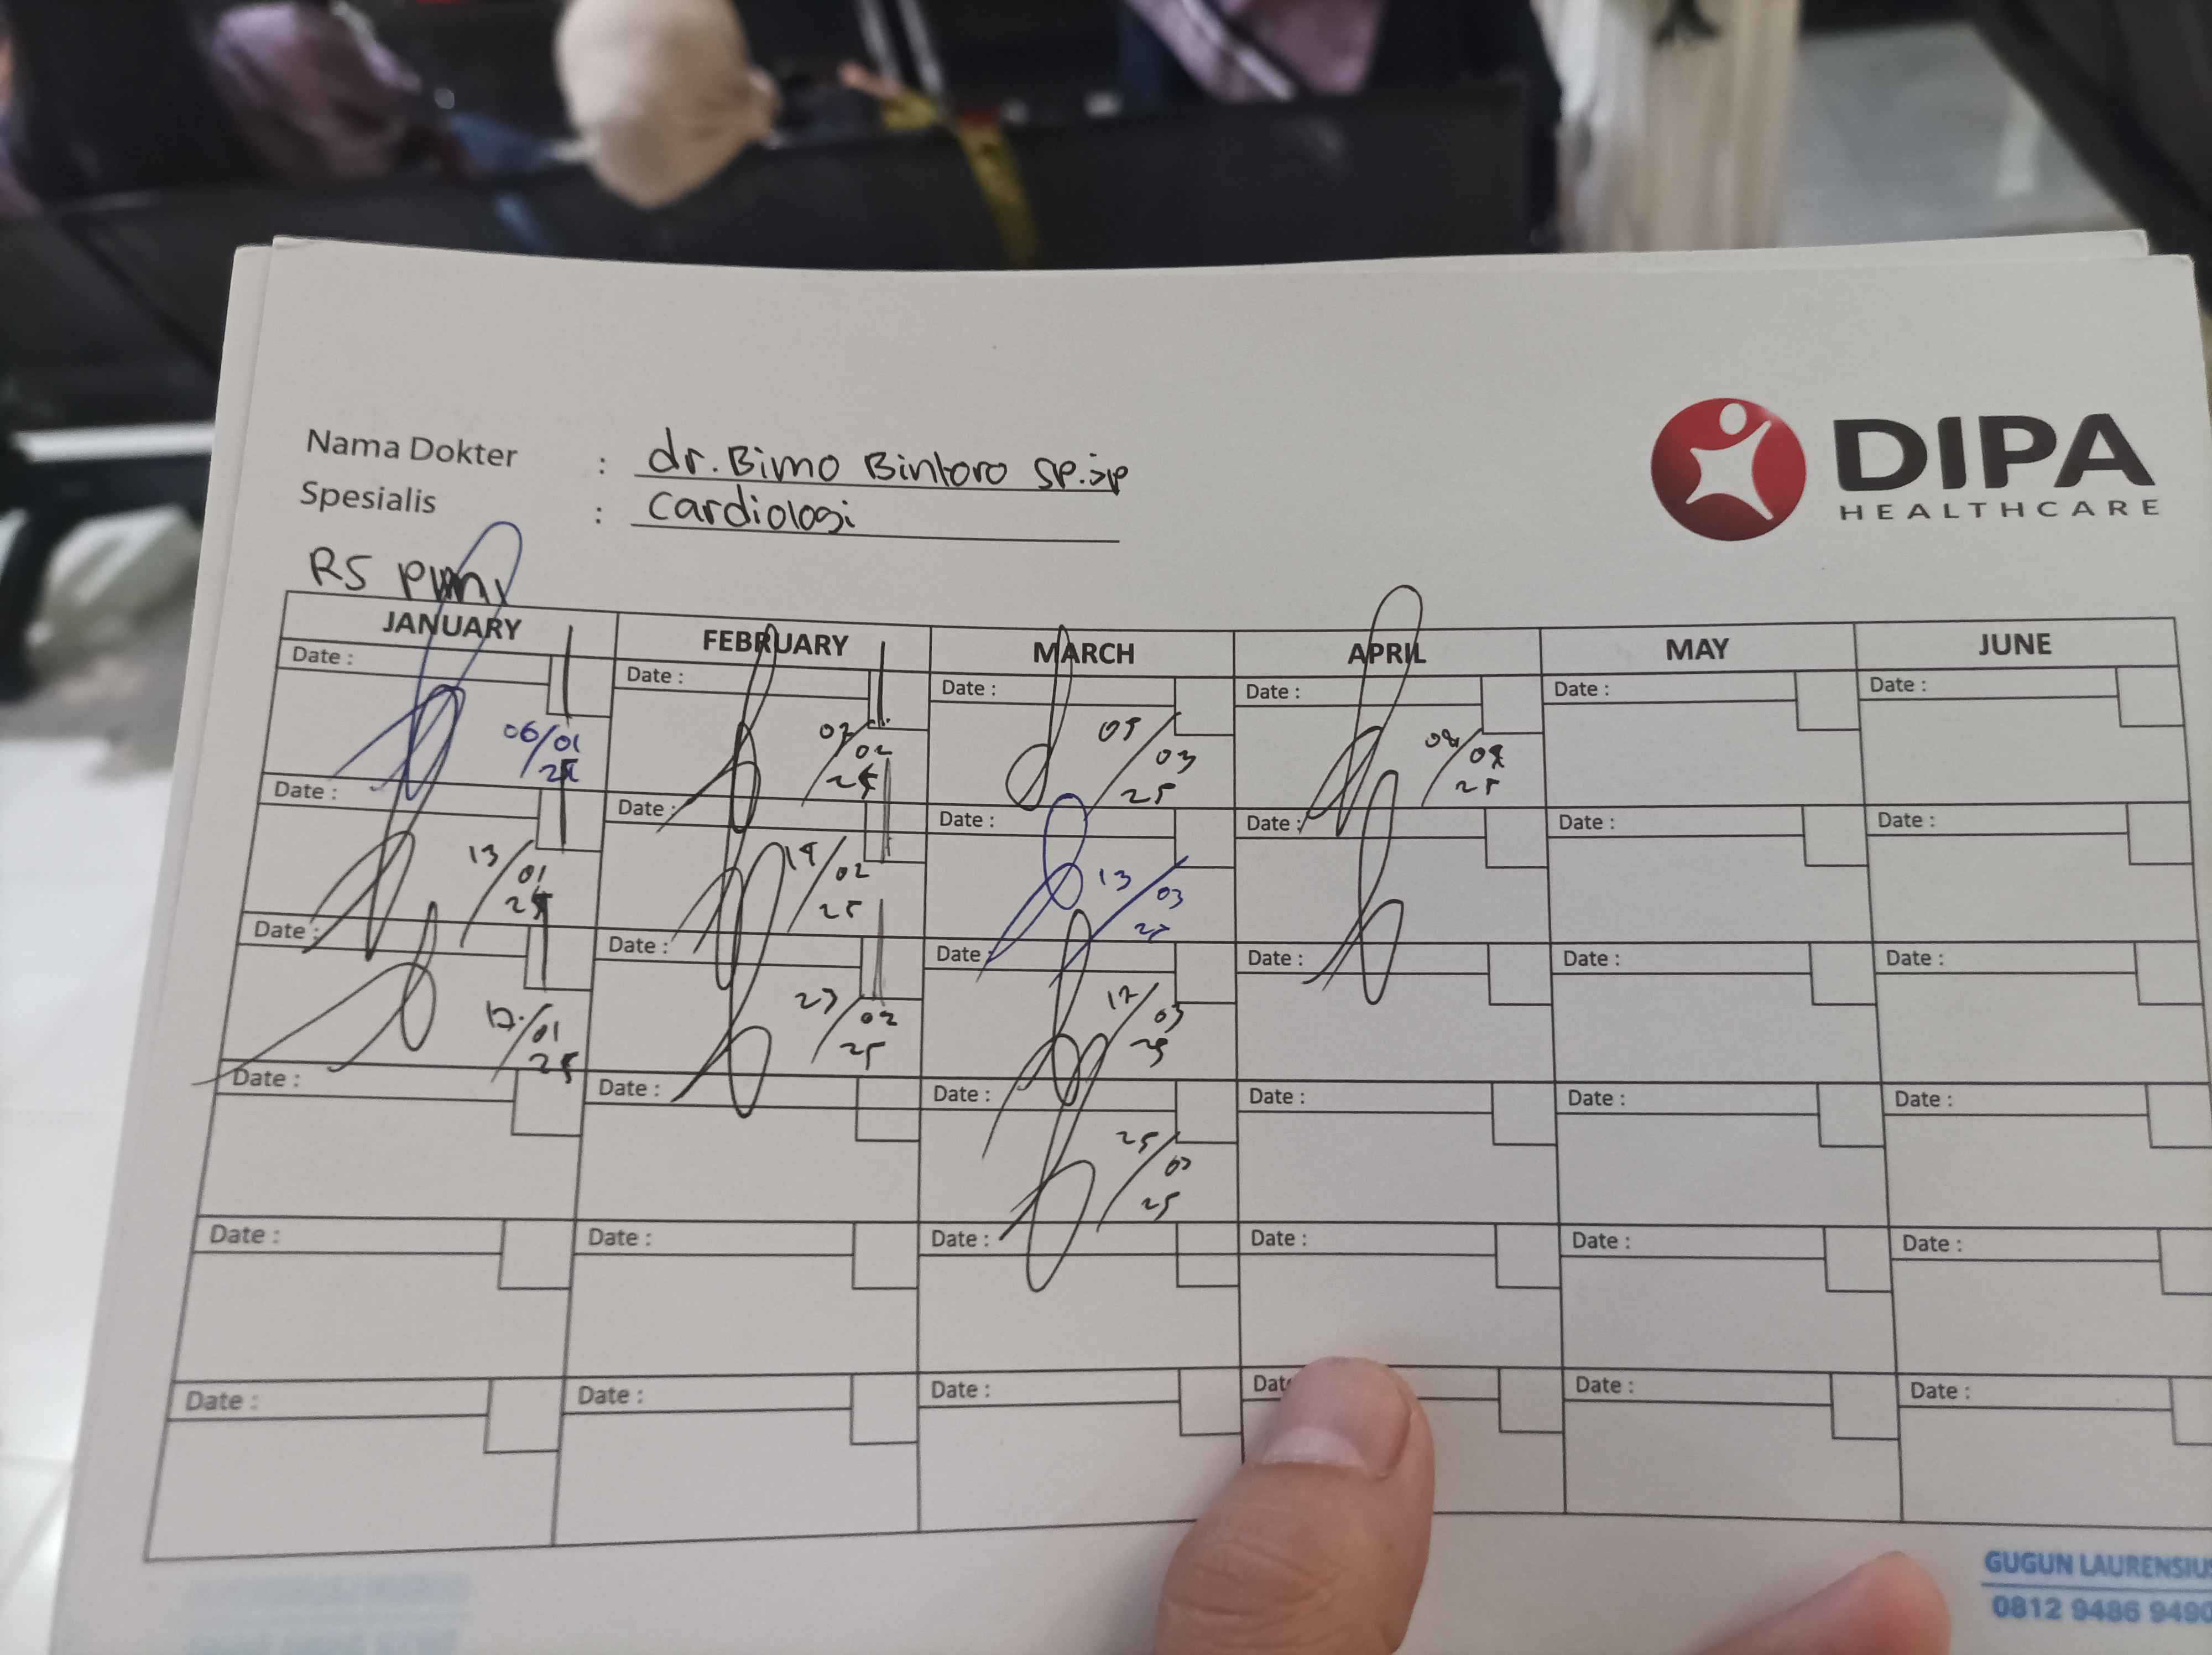 Nama Dokter : dr. Bimo Bintoro sp.jp
Spesialis : Cardiologi
DIPA
HEALTHCARE
RS
JANUARY FEBRUARY MARCH APRIL MAY JUNE
Date : Date : Date : Date : Date : Date :
06/01 25 07/02 25 05/03 25 08/04 25
Date : Date : Date : Date : Date : Date :
13/01 25 14/02 25 13/03 25
Date : Date : Date : Date : Date : Date :
17/01 25 27/02 25 17/03 25
Date : Date : Date : Date : Date : Date :
25/03 25
Date : Date : Date : Date : Date : Date :
Date : Date : Date : Dat Date : Date :
GUGUN LAURENSIUS
0812 9486 9490